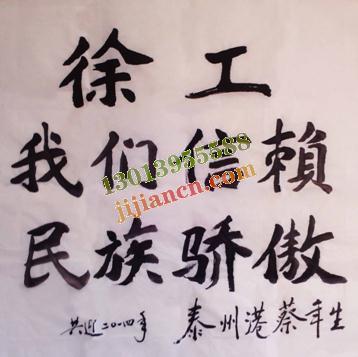 徐工
我们信賴
13013955588
jijiancn.com
民族骄傲
共迎二〇一四年 泰州港蔡年生